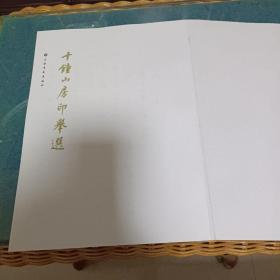 十鐘山房印舉選